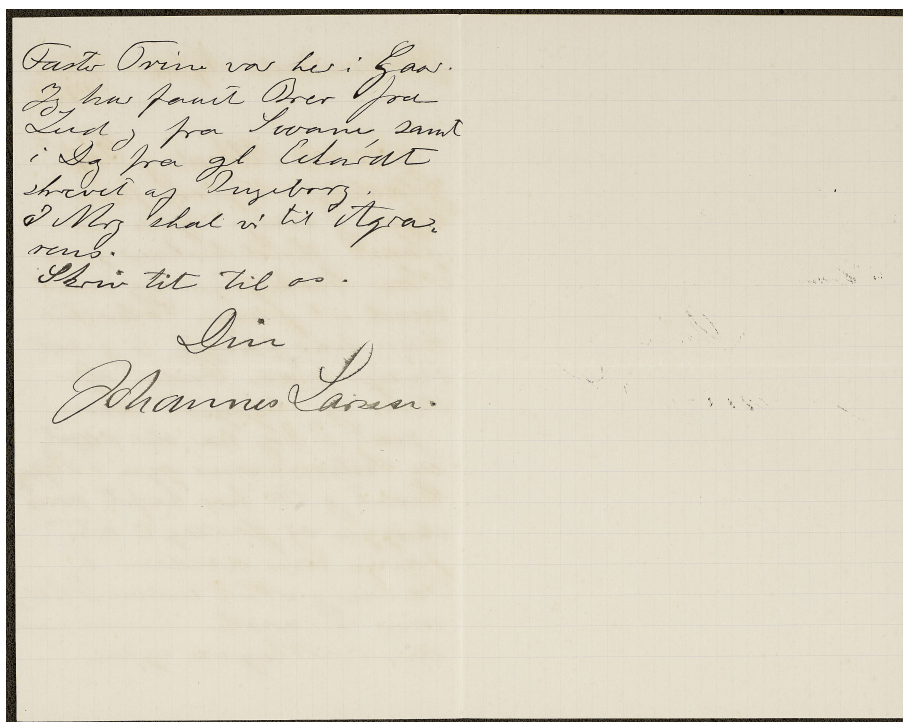 Faster Trine var her i Gaar.
Jeg har faaet Brev fra
Lud, fra Swane, samt
i Dag fra gl Eckardt
skrevet af Ingeborg.
I Mrg skal vi til Agra-
rens.
Skriv tit til os.
Din
Johannes Larsen.